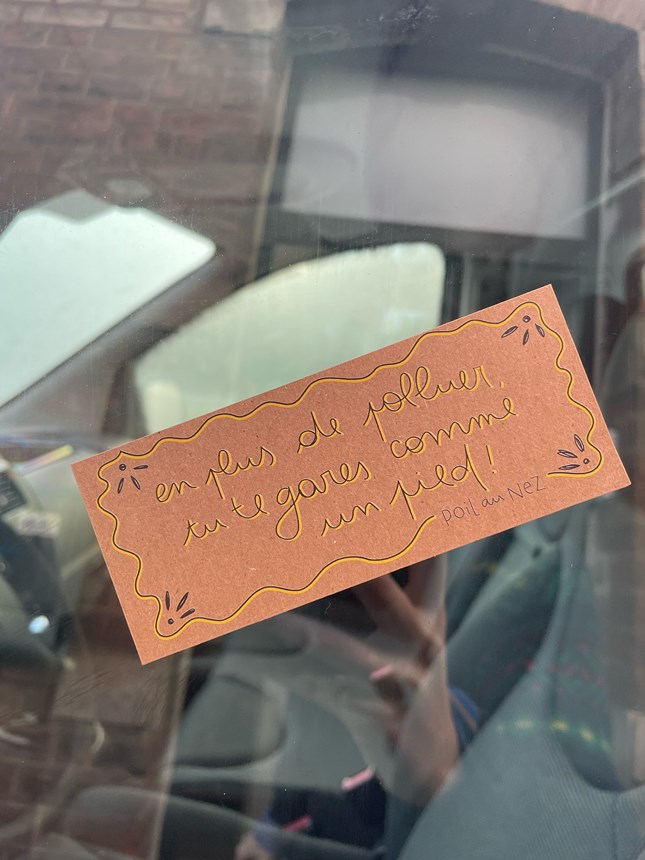 en plus de polluer,
tu te gares comme
un pied!
POiL au NEZ